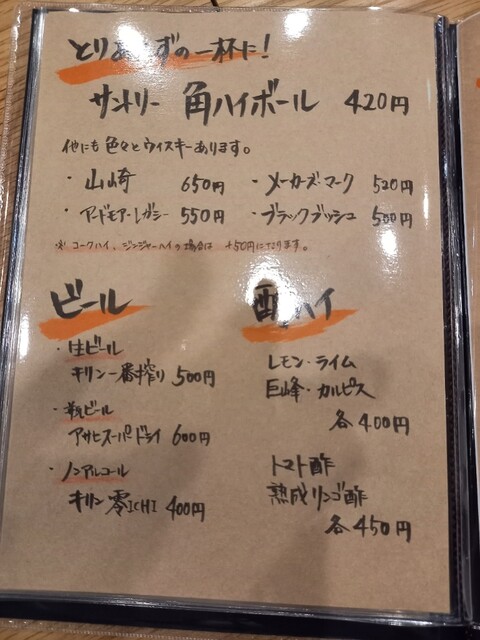 とりあえずの一杯に!
サントリー 角ハイボール 420円
他にも色々とウィスキーあります。
・山崎 650円 ・メーカーズ・マーク 520円
・アードモアレガシー 550円 ・ブラックブッシュ 500円
※ コークハイ、ジンジャーハイの場合は +50円になります。
ビール
・生ビール
キリン一番搾り 500円
・瓶ビール
アサヒスーパードライ 600円
・ノンアルコール
キリン 零ICHI 400円
酎ハイ
レモン・ライム
巨峰・カルピス
各400円
トマト酢
熟成リンゴ酢
各450円